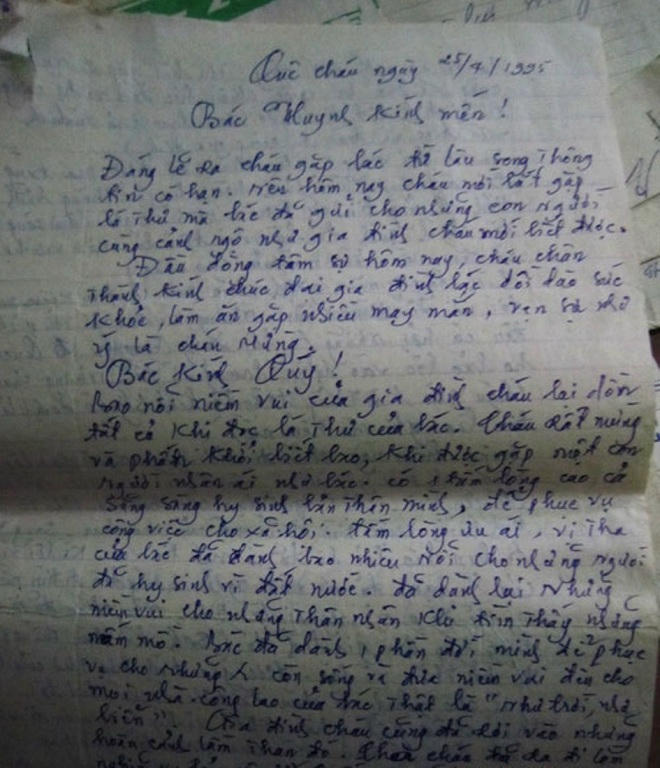 Quê cháu ngày 25/4/1995
Bác Huynh Kính mến!
Đáng lẽ ra cháu gặp bác từ lâu song thông
tin có hạn. Nên hôm nay cháu mới bắt gặp
lá thư mà bác đã gửi cho những con người
cùng cảnh ngộ như gia đình cháu mới biết được.
Đầu dòng tâm sự hôm nay, cháu chân
thành kính chúc đại gia đình bác dồi dào sức
khỏe, làm ăn gặp nhiều may mắn, vạn sự như
ý là cháu mừng.
Bác Kính Quý!
Bao nỗi niềm vui của gia đình cháu lại dồn
tất cả khi đọc lá thư của bác. Cháu rất mừng
và phấn khởi biết bao, khi được gặp một con
người nhân ái như bác. có 1 tấm lòng cao cả
sẵng sàng hy sinh bản thân mình, để phục vụ
công việc cho xã hội. tấm lòng ưu ái, vị tha
của bác đã dành bao nhiêu rồi cho những người
đã hy sinh vì đất nước. đã dành lại những
niềm vui cho những thân nhân khi tìm thấy những
nấm mồ. Bác đã dành 1 phần đời mình để phục
vụ cho những còn sống và đưa niềm vui đến cho
mọi nhà. công lao của bác thật là "như trời, như
biển". Gia đình cháu cũng đã rơi vào những
hoàn cảnh lầm than đó. cháu đã ra đi làm